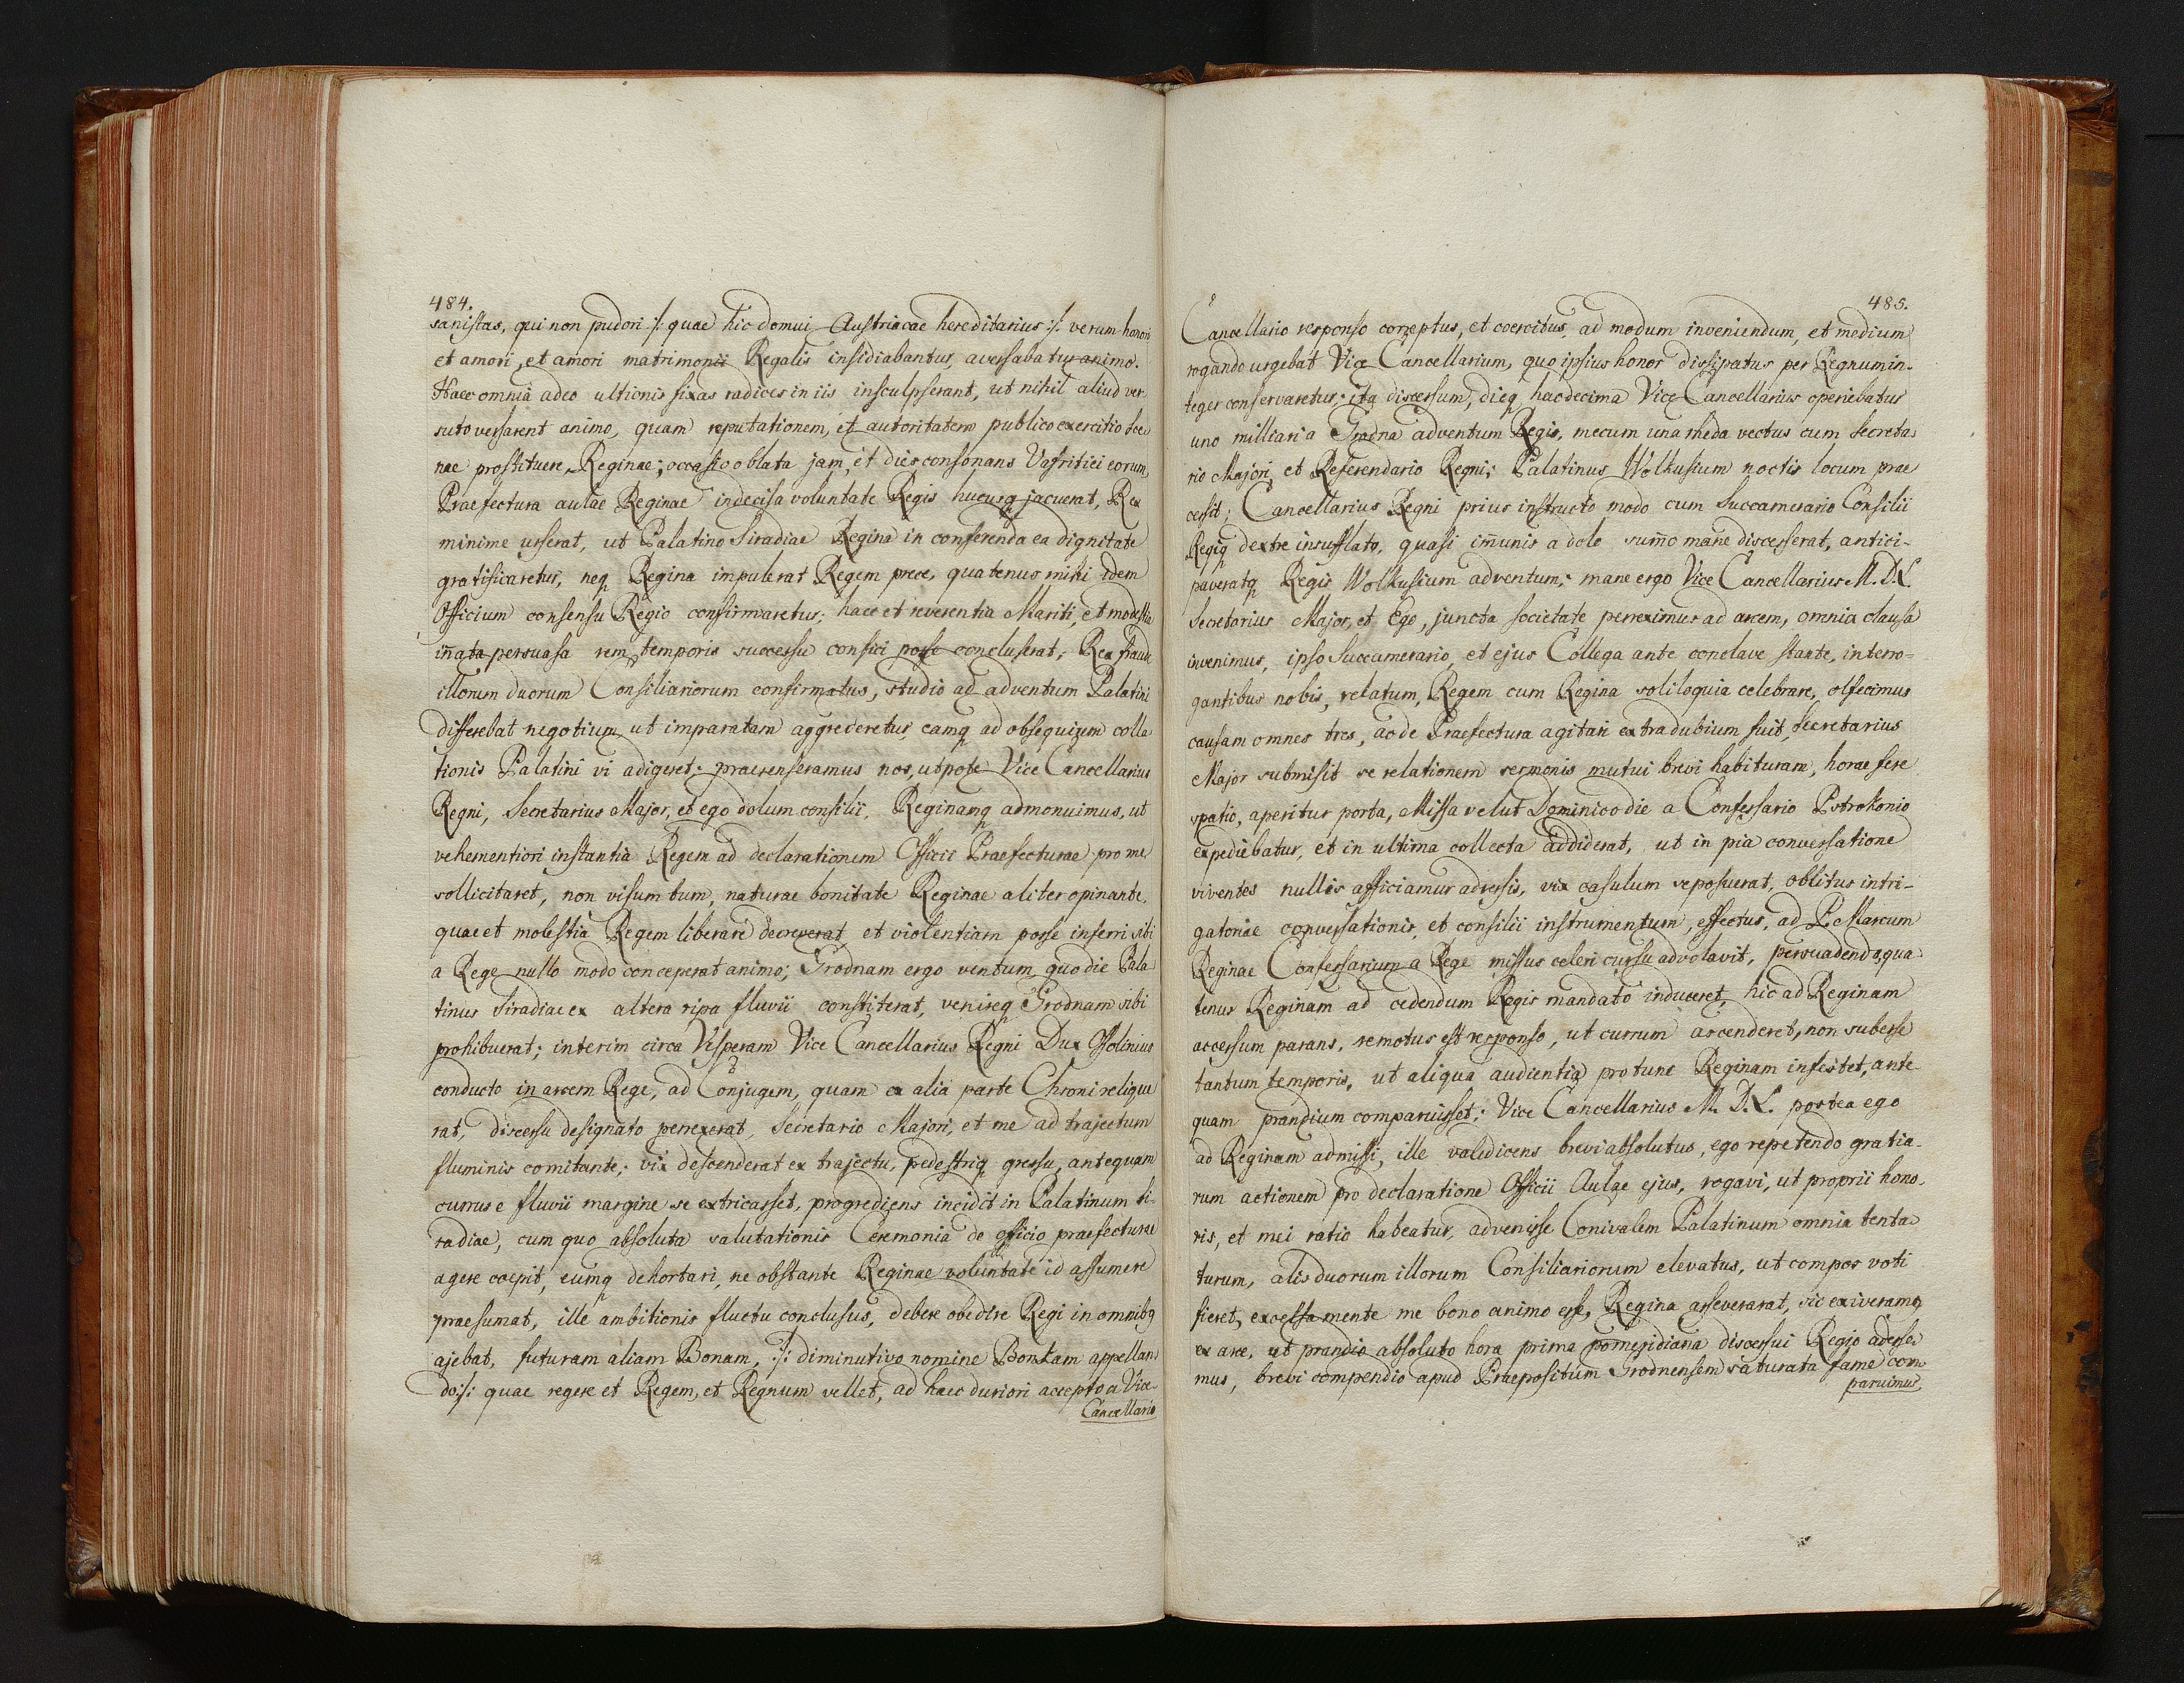 484.
sanistas, qui non pudori :/: quae hic domui Austriacae hereditarius :/: verum honori
et amori, et amori matrimonii Regalis insidiabantur, aversabatur animo.
Haec omnia adeo ultionis fixas radices in iis insculpserant, ut nihil aliud ver
suto versarent animo, quam reputationem, et autoritatem publico exercitio sce
nae prostituere Reginae; occasio oblata jam, et dies consonans Vafritiei eorum,
Praefectura aulae Reginae indecisa voluntate Regis hucusq jacuerat, Rex
minime urserat, ut Palatino Siradiae Regina in conferenda ea dignitate
gratificaretur, neq Regina impulerat Regem prece, quatenus mihi idem
Officium consensu Regio confirmaretur; haec et reverentia Mariti, et modestia
iñata persuasa rem temporis successu confici posse concluserat; Rex fraude
illorum duorum Consiliariorum confirmatus, studio ad adventum Palatini
differebat negotium, ut imparatam aggrederetur, eamq ad obsequium colla
tionis Palatini vi adigeret; praesenseramus nos, utpote Vice Cancellarius
Regni, Secretarius Major, et ego dolum consilii, Reginamq admonuimus, ut
vehementiori instantia Regem ad declarationem Officii Praefecturae pro me
sollicitaret, non visum tum, naturae bonitate Reginae aliter opinante,
quae et molestia Regem liberare decreverat, et violentiam posse inferri sibi
a Rege nullo modo conceperat animo; Grodnam ergo ventum, quo die Pala
tinus Siradiae ex altera ripa fluvii constiterat, venireq Grodnam sibi
prohibuerat; interim circa Vesperam Vice Cancellarius Regni Dux Ossolinius
conducto in arcem Rege, ad Conjugem, quam ex alia parte Chroni relique
rat, discessu designato perrexerat, Secretario Majori, et me ad trajectum
fluminis comitante; vix descenderat ex trajectu, pedestriq gressu, antequam
currus e fluvii margine se extricasset, progrediens incidit in Palatinum Si-
radiae, cum quo absoluta salutationis Ceremonia de officio praefecturae
agere coepit, eumq dehortari, ne obstante Reginae voluntate id assumere
praesumat, ille ambitionis fluctu conclusus, debere obedire Regi in omnibq
ajebat, futuram aliam Bonam, :/: diminutivo nomine Bonkam appellan
do :/: quae regere et Regem, et Regnum vellet, ad haec duriori accepto a Vice
Cancellario
485.
Cancellario responso correptus, et coercitus, ad modum inveniendum, et medium
rogando urgebat Vice Cancellarium, quo ipsius honor dissipatus per Regnum in-
teger conservaretur; ita discessum, dieq hac decima Vice Cancellarius operiebatur
uno milliari a Grodna adventum Regis, mecum una rheda vectus cum Secreta
rio Majori, et Referendario Regni; Palatinus Wolkusium noctis locum prae
cessit; Cancellarius Regni prius instructo modo cum Succamerario Consilii
Regiq dextre insufflato, quasi im̃unis a dolo sum̃o mane discesserat, antici-
paveratq Regis Wolkusium adventum; mane ergo Vice Cancellarius M. D. L.
Secretarius Major, et Ego, juncta societate perreximus ad arcem, omnia clausa
invenimus, ipso Succumerario, et ejus Collega ante conclave stante, interro-
gantibus nobis, relatum, Regem cum Regina soliloquia celebrare, olfecimus
causam omnes tres, ac de Praefectura agitari extra dubium fuit, Secretarius
Major submisit se relationem sermonis mutui brevi habiturum, horae fere
spatio, aperitur porta, Missa velut Dominico die a Confessario Pstrokonio
expediebatur, et in ultima collecta addiderat, ut in pia conversatione
viventes nullis afficiamur adversis, vix casulum seposuerat, oblitus intri-
gatoriae conversationis, et consilii instrumentum, effectus, ad P. Marcum
Reginae Confessarium a Rege missus celeri cursu advolavit, persuadendo, qua
tenus Reginam ad cedendum Regis mandato induceret, hic ad Reginam
accessum parans, remotus est responso, ut currum ascenderet, non subesse
tantum temporis, ut aliqua audientia pro tunc Reginam infestet, ante
quam prandium comparuisset; Vice Cancellarius M. D. L. postea ego
ad Reginam admissi, ille valedicens brevi absolutus, ego repetendo gratia-
rum actionem pro declaratione Officii Aulae ejus, rogavi, ut proprii hono-
ris, et mei ratio habeatur, advenisse Conivalem Palatinum omnia tenta
turum, alis duorum illorum Consiliariorum elevatus, ut compos voti
fieret, excelsa mente me bono animo esse, Regina asseverarat, sic exiveramq
ex arce, ut prandio absoluto hora prima pomeridiana discessui Regio adesse
mus, brevi compendio apud Praepositum Grodnensem saturata fame com
paruimus